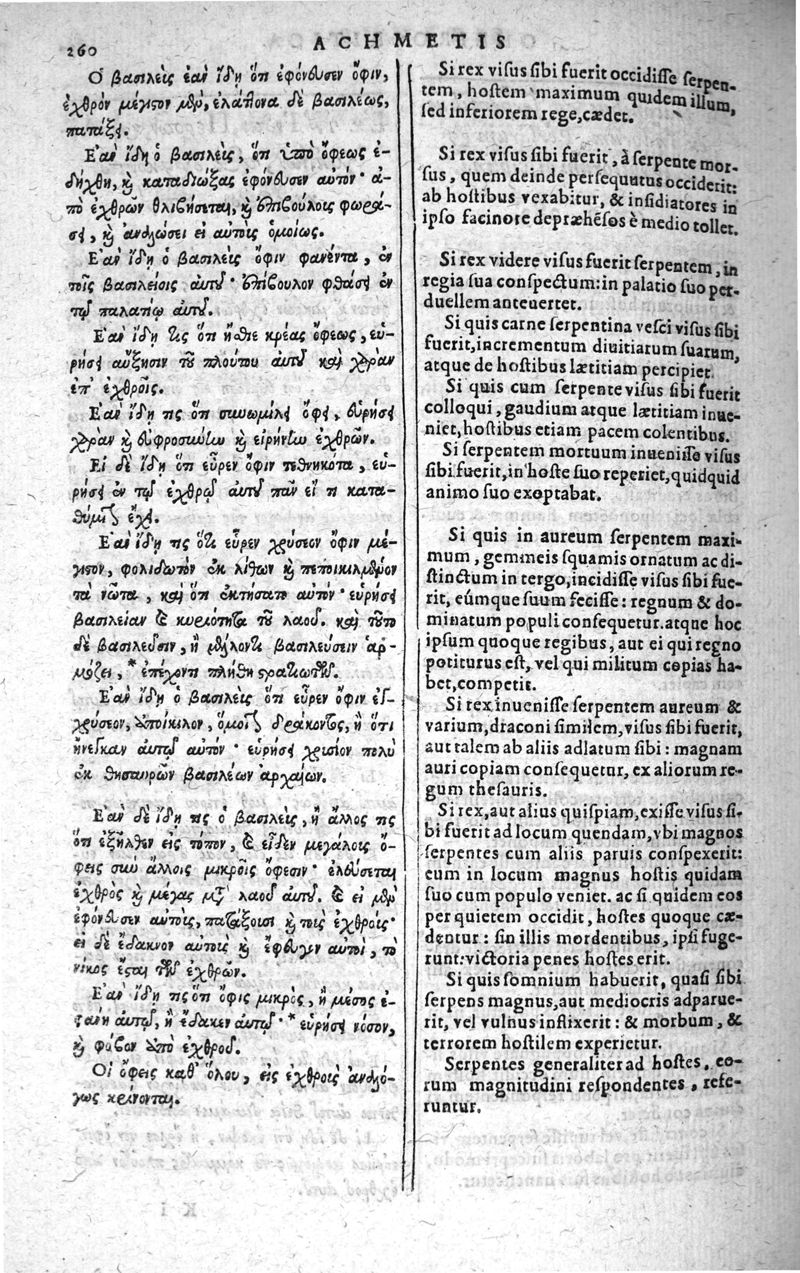 260
ACHMETIS
Ὁ βασιλεὺς ἐὰν ἴδῃ ὅτι ἐφόνευσεν ὄφιν,
ἐχθρὸν μέγιστον μὲν, ἐλάττονα δὲ βασιλέως,
πατάξει.
Ἐὰν ἴδῃ ὁ βασιλεὺς, ὅτι ὑπὸ ὄφεως ἐ-
δήχθη, καὶ καταδιώξας ἐφόνευσεν αὐτόν· ἀ-
πὸ ἐχθρῶν θλιβήσεται, καὶ ἐπιβούλοις φωρά-
σει, καὶ ἀναλώσει ἐν αὐτοῖς ὁμοίως.
Ἐὰν ἴδῃ ὁ βασιλεὺς ὄφιν φανέντα, ἐν
τοῖς βασιλείοις αὐτοῦ· ἐπίβουλον φθάσει ἐν
τῷ παλατίῳ αὐτοῦ.
Ἐὰν ἴδῃ τις ὅτι ἤσθιε κρέας ὄφεως, εὑ-
ρήσει αὔξησιν τοῦ πλούτου αὐτοῦ καὶ χαρὰν
ἐπ' ἐχθροῖς.
Ἐὰν ἴδῃ τις ὅτι συνωμίλει ὄφει, εὑρήσει
χαρὰν καὶ εὐφροσύνην καὶ εἰρήνην ἐχθρῶν.
Εἰ δὲ ἴδῃ ὅτι εὗρεν ὄφιν τεθνηκότα, εὑ-
ρήσει ἐν τῷ ἐχθρῷ αὐτοῦ πᾶν εἴ τι κατα-
θύμιον ἔχει.
Ἐὰν ἴδῃ τις ὅτι εὗρεν χρύσεον ὄφιν μέ-
γιστον, φολιδωτὸν ἐκ λίθων καὶ πεποικιλμένον
τὰ νῶτα, καὶ ὅτι ἐκτήσατο αὐτόν· εὑρήσει
βασιλείαν καὶ κυριότητα τοῦ λαοῦ. καὶ τοῦτο
δὲ βασιλεῦσιν, ἢ μέλλοντι βασιλεύσειν ἁρ-
μόζει, * ἐπέχοντι πλήθη στρατιωτῶν.
Ἐὰν ἴδῃ ὁ βασιλεὺς ὅτι εὗρεν ὄφιν ἐγ-
χρύσεον, ὑποίκιλον, ὅμοιον δράκοντος, ἢ ὅτι
ἤνεγκαν αὐτῷ αὐτόν· εὑρήσει χρυσίον πολὺ
ἐκ θησαυρῶν βασιλέων ἀρχαίων.
Ἐὰν δὲ ἴδῃ τις ὁ βασιλεὺς, ἢ ἄλλος τις
ὅτι ἐξῆλθεν εἰς τόπον, καὶ εἶδεν μεγάλους ὄ-
φεις σὺν ἄλλοις μικροῖς ὄφεσιν· ἐλεύσεται
ἐχθρὸς καὶ μέγας μετὰ λαοῦ αὐτοῦ. καὶ εἰ μὲν
ἐφόνευσεν αὐτοὺς, πατάξουσι καὶ τοὺς ἐχθρούς·
εἰ δὲ ἔδακνον αὐτοὺς καὶ ἔφευγεν αὐτοὶ, τὸ
νῖκος ἔσται τῶν ἐχθρῶν.
Ἐὰν ἴδῃ τις ὅτι ὄφις μικρὸς, ἢ μέσος ἐ-
φάνη αὐτῷ, ἢ ἔδακεν αὐτῷ· * εὑρήσει νόσον,
καὶ φόβον ὑπὸ ἐχθροῦ.
Οἱ ὄφεις καθ' ὅλου, εἰς ἐχθροὺς ἀναλό-
γως κρίνονται.
Si rex visus sibi fuerit occidisse serpen-
tem, hostem maximum quidem illum,
sed inferiorem rege, cædet.
Si rex visus sibi fuerit, à serpente mor-
sus, quem deinde persequutus occiderit:
ab hostibus vexabitur, & insidiatores in
ipso facinore depræhēsos è medio tollet.
Si rex videre visus fuerit serpentem, in
regia sua conspectum: in palatio suo per-
duellem anteuertet.
Si quis carne serpentina vesci visus sibi
fuerit, incrementum diuitiarum suarum,
atque de hostibus lætitiam percipiet.
Si quis cum serpente visus sibi fuerit
colloqui, gaudium atque lætitiam inue-
niet, hostibus etiam pacem colentibus.
Si serpentem mortuum inuenisse visus
sibi fuerit, in hoste suo reperiet, quidquid
animo suo exoptabat.
Si quis in aureum serpentem maxi-
mum, gemmeis squamis ornatum ac di-
stinctum in tergo, incidisse visus sibi fue-
rit, eúmque suum fecisse: regnum & do-
minatum populi consequetur. atque hoc
ipsum quoque regibus, aut ei qui regno
potiturus est, vel qui militum copias ha-
bet, competit.
Si rex inuenisse serpentem aureum &
varium, draconi similem, visus sibi fuerit,
aut talem ab aliis adlatum sibi: magnam
auri copiam consequetur, ex aliorum re-
gum thesauris.
Si rex, aut alius quispiam, exisse visus si-
bi fuerit ad locum quendam, vbi magnos
serpentes cum aliis paruis conspexerit:
eum in locum magnus hostis quidam
suo cum populo veniet. ac si quidem eos
per quietem occidit, hostes quoque cæ-
dentur: sin illis mordentibus, ipsi fuge-
runt: victoria penes hostes erit.
Si quis somnium habuerit, quasi sibi
serpens magnus, aut mediocris adparue-
rit, vel vulnus inflixerit: & morbum, &
terrorem hostilem experietur.
Serpentes generaliter ad hostes, eo-
rum magnitudini respondentes, refe-
runtur.